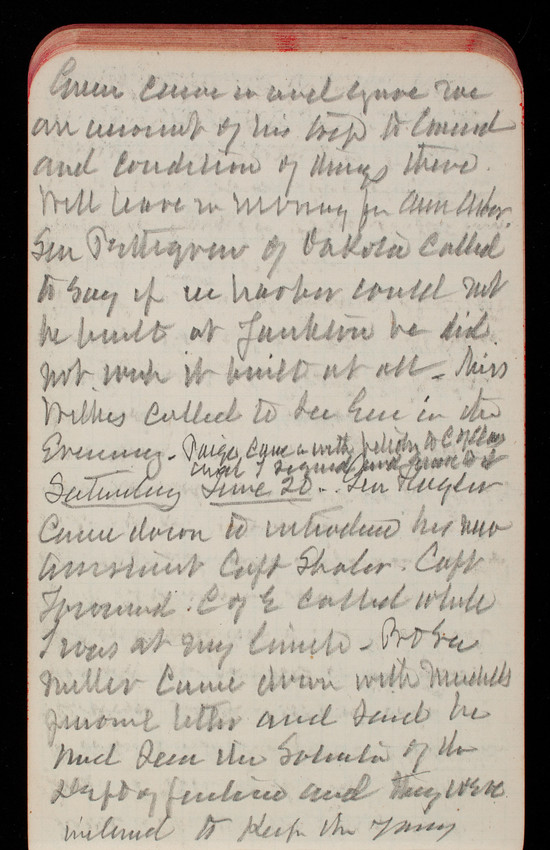 came in and gave me
an account of his trip to
and condition of things there.
Will leave in morning for Ann Arbor.
Sen Pettigrew of Dakota called
to say if harbor could not
be built at Yankton he did
not wish it built at all - Miss
Wilkes called to see Gen in the
Evening - Paige came in with to C of Claims
and I signed and gave to it
Saturday June 20 - Gen
Came down to introduce his new
assistant Capt Shaler. Capt
C of E called while
I was at my lunch -
Miller Came down with
letter and said he
had seen the of the
Dept of Justice and they were
inclined to keep the